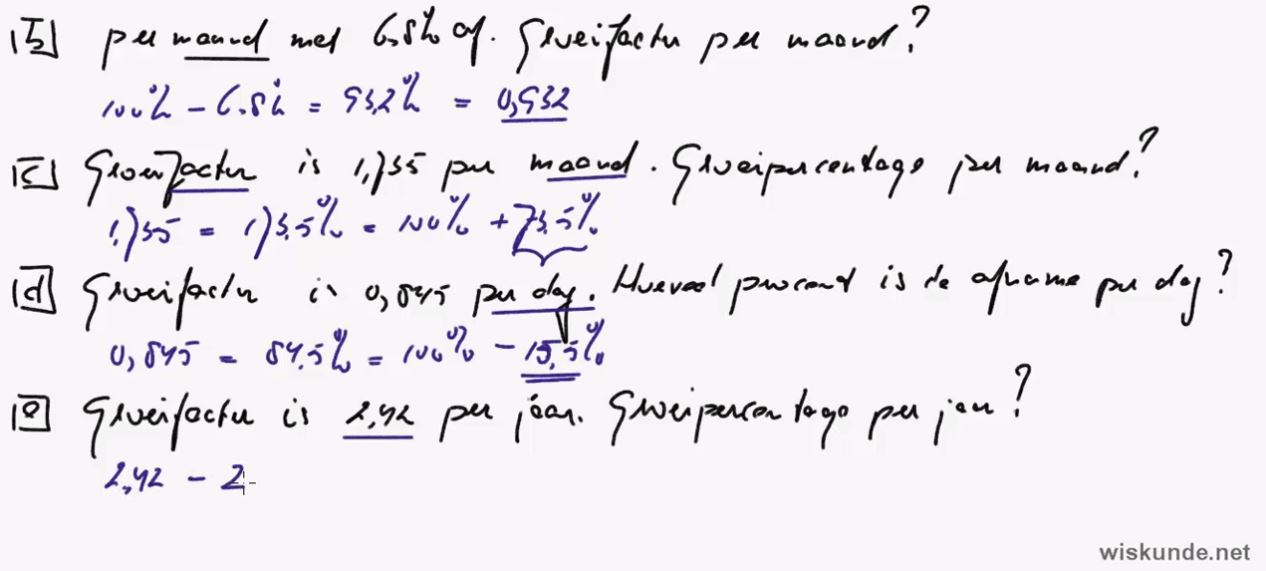 b per maand met 6,8% af. Groeifactor per maand?
100% - 6,8% = 93,2% = 0,932
c Groeifactor is 1,735 per maand. Groeipercentage per maand?
1,735 = 173,5% = 100% + 73,5%
d Groeifactor is 0,845 per dag. Hoeveel procent is de afname per dag?
0,845 = 84,5% = 100% - 15,5%
e Groeifactor is 2,42 per jaar. Groeipercentage per jaar?
2,42 - 2
wiskunde.net